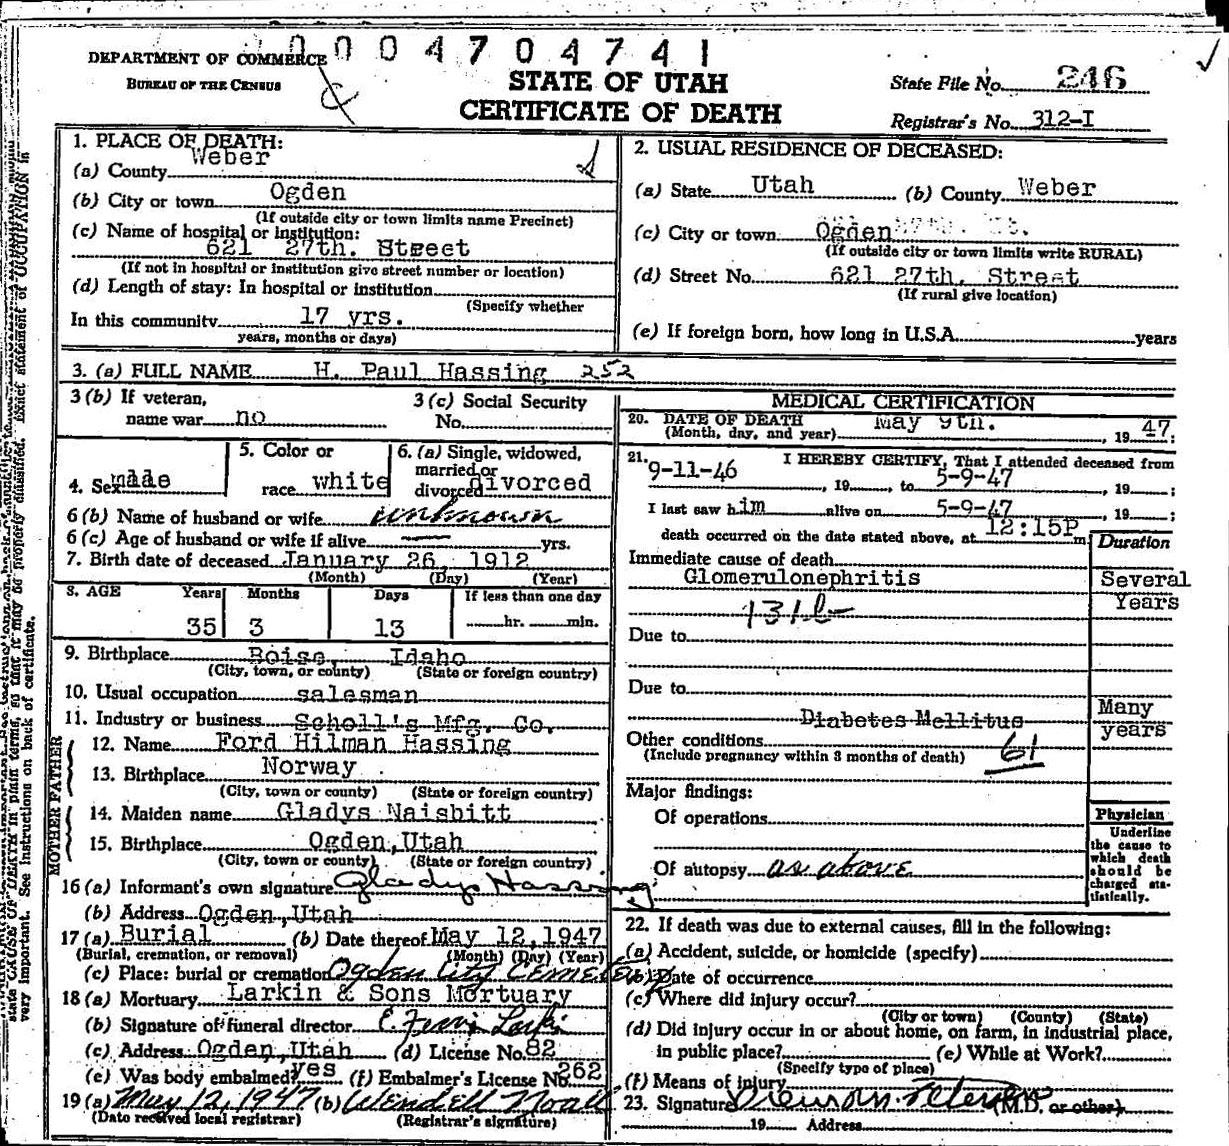 0004704741
DEPARTMENT OF COMMERCE
BUREAU OF THE CENSUS
STATE OF UTAH
CERTIFICATE OF DEATH
State File No. 246
Registrar's No. 312-I
1. PLACE OF DEATH:
(a) County Weber
(b) City or town Ogden
(If outside city or town limits name Precinct)
(c) Name of hospital or institution:
621 27th. Street
(If not in hospital or institution give street number or location)
(d) Length of stay: In hospital or institution
(Specify whether
In this community 17 yrs.
years, months or days)
2. USUAL RESIDENCE OF DECEASED:
(a) State Utah (b) County Weber
(c) City or town Ogden
(If outside city or town limits write RURAL)
(d) Street No. 621 27th. Street
(If rural give location)
(e) If foreign born, how long in U.S.A. years
3. (a) FULL NAME H. Paul Hassing 252
3 (b) If veteran,
name war no
3 (c) Social Security
No.
4. Sex
5. Color or
race white
6. (a) Single, widowed,
married or
divorced divorced
6 (b) Name of husband or wife unknown
6 (c) Age of husband or wife if alive — yrs.
7. Birth date of deceased January 26, 1912
(Month) (Day) (Year)
8. AGE Years Months Days If less than one day
35 3 13 hr. min.
9. Birthplace Boise, Idaho
(City, town, or county) (State or foreign country)
10. Usual occupation salesman
11. Industry or business Scholl's Mfg. Co.
FATHER
12. Name Ford Hilman Hassing
13. Birthplace Norway
(City, town or county) (State or foreign country)
MOTHER
14. Maiden name Gladys Naisbitt
15. Birthplace Ogden, Utah
(City, town or county) (State or foreign country)
16 (a) Informant's own signature Gladys Hassing
(b) Address Ogden, Utah
17 (a) Burial (b) Date thereof May 12, 1947
(Burial, cremation, or removal) (Month) (Day) (Year)
(c) Place: burial or cremation Ogden City Cemetery
18 (a) Mortuary Larkin & Sons Mortuary
(b) Signature of funeral director E. Larkin
(c) Address Ogden, Utah (d) License No. 82
(e) Was body embalmed? yes (f) Embalmer's License No. 262
19 (a) May 12, 1947 (b) Wendell Noall
(Dato received local registrar) (Registrar's signature)
MEDICAL CERTIFICATION
20. DATE OF DEATH May 9th. , 1947;
(Month, day, and year)
21. I HEREBY CERTIFY, That I attended deceased from
9-11-46 , 19 , to 5-9-47 , 19 ;
I last saw him alive on 5-9-47 , 19 ;
death occurred on the date stated above, at 12:15P m.
Duration
Immediate cause of death
Glomerulonephritis Several Years
131b
Due to
Due to
Diabetes Mellitus Many years
Other conditions 61
(Include pregnancy within 3 months of death)
Major findings:
Of operations
Of autopsy as above
Physician
Underline
the cause to
which death
should be
charged sta-
tistically.
22. If death was due to external causes, fill in the following:
(a) Accident, suicide, or homicide (specify)
(b) Date of occurrence
(c) Where did injury occur?
(City or town) (County) (State)
(d) Did injury occur in or about home, on farm, in industrial place,
in public place? (e) While at Work?
(Specify type of place)
(f) Means of injury
23. Signature (M.D. or other)
19 Address
state CAUSE OF DEATH in plain terms, so that it may be properly classified. Exact statement of OCCUPATION is
very important. See instructions on back of certificate.